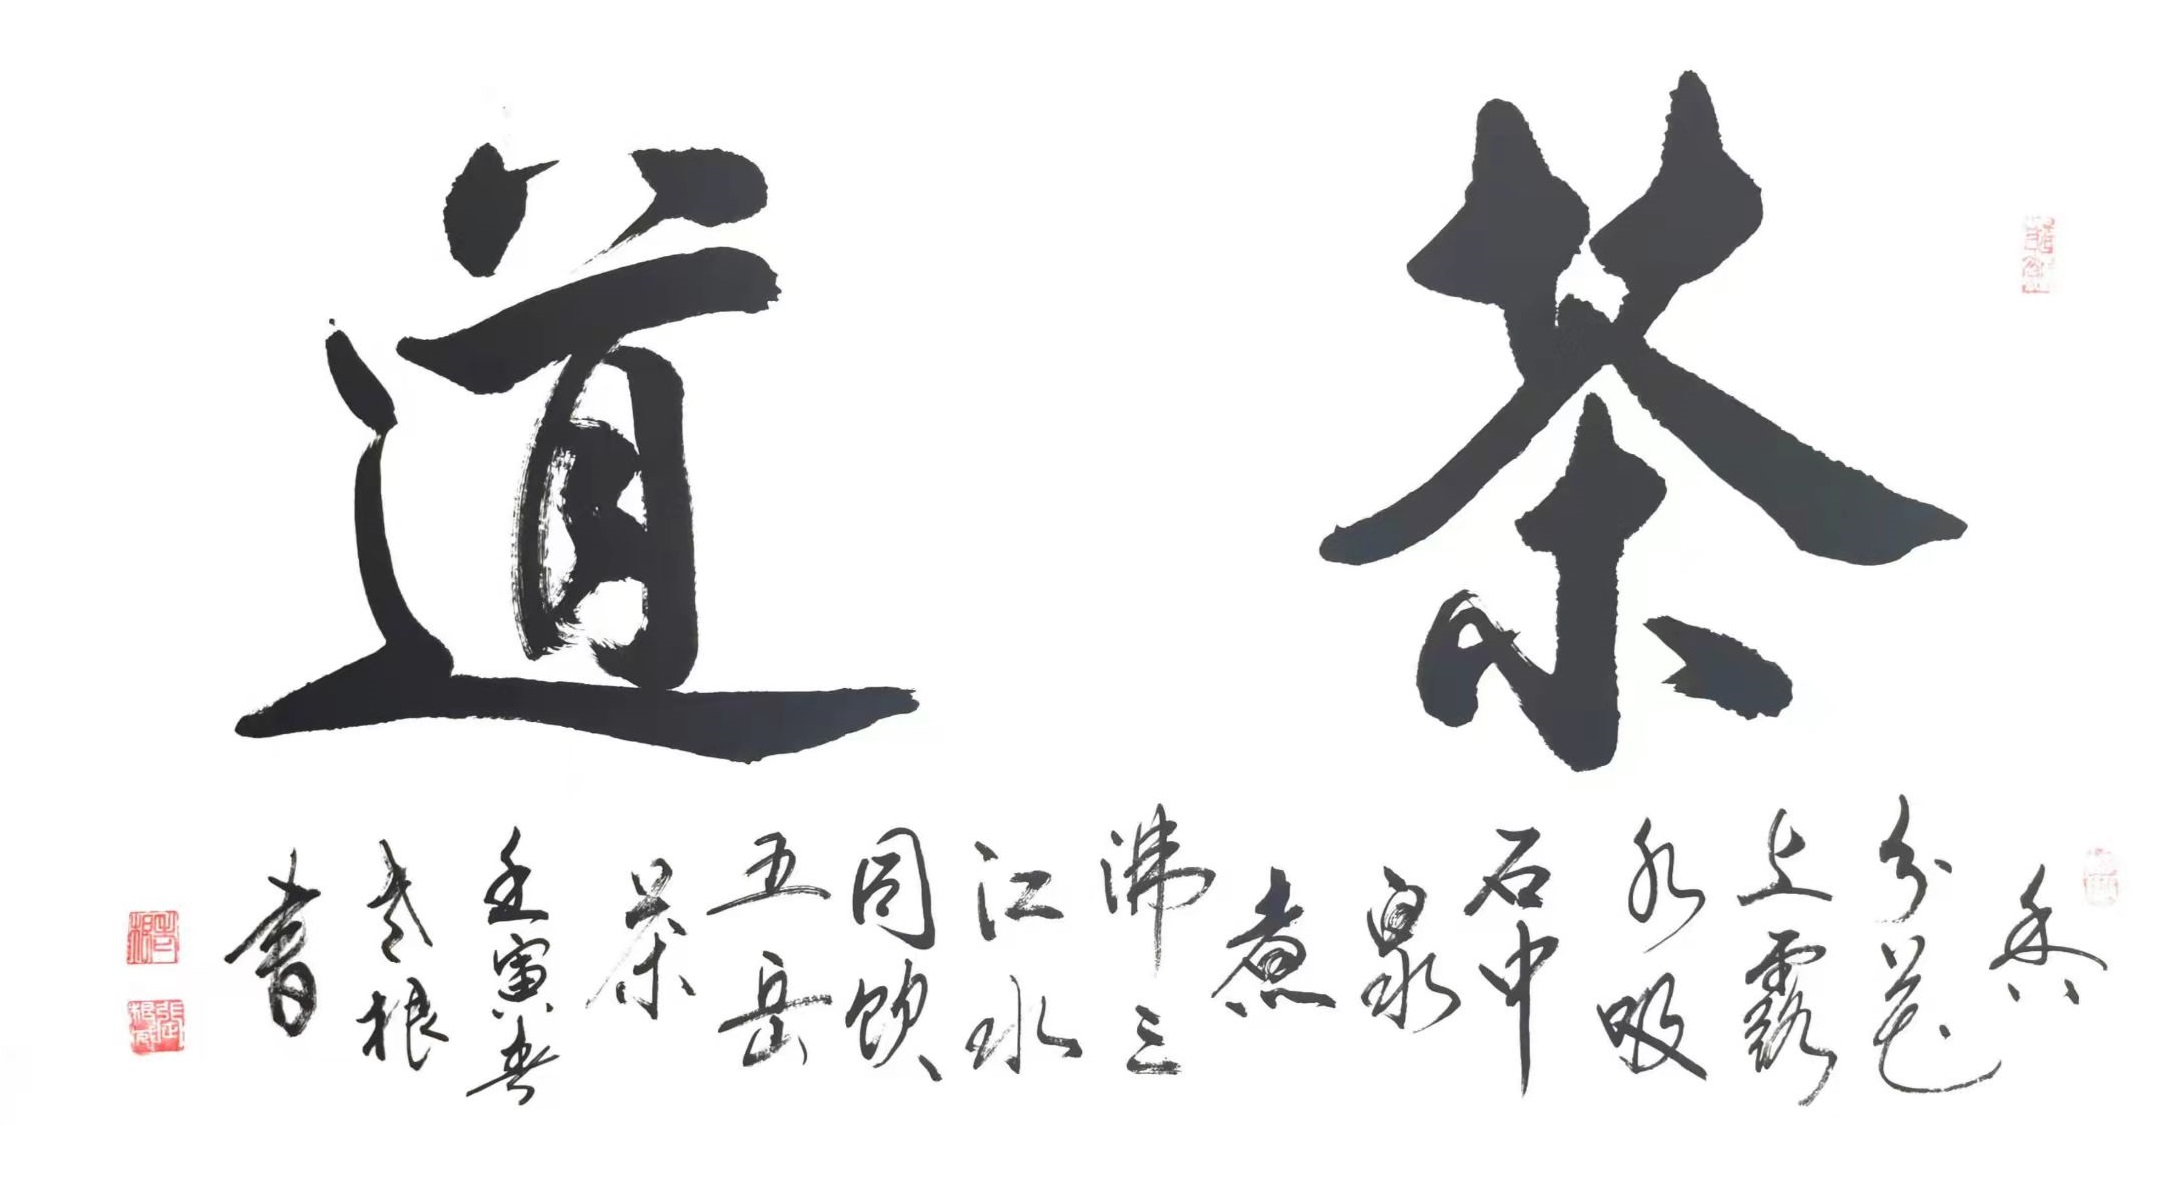 茶道
香
分花
上露
水吸
石中
泉
煮
沸三
江水
同饮
五岳
茶
壬寅春
老根
書